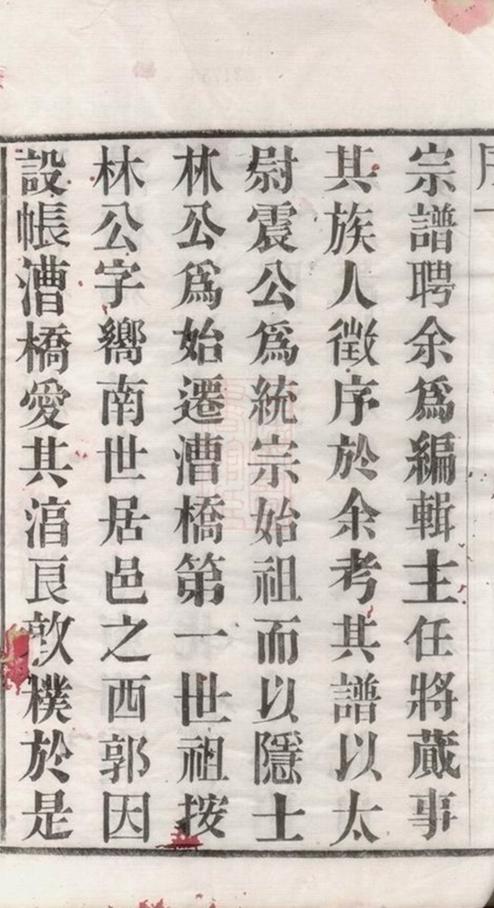 宗譜聘余爲編輯主任將蕆事
其族人徵序於余考其譜以太
尉震公爲統宗始祖而以隱士
林公爲始遷漕橋第一世祖按
林公字嚮南世居邑之西郭因
設帳漕橋愛其湻良敦樸於是